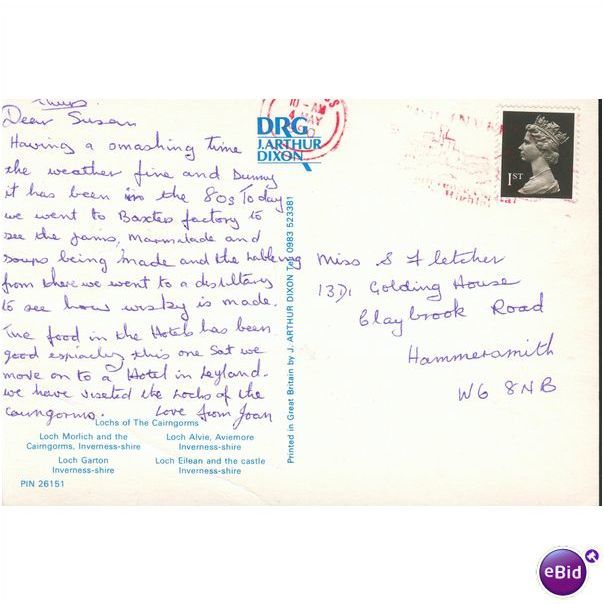 Thurs.
Dear Susan
Having a smashing time
the weather fine and sunny
it has been in the 80s Today
we went to Baxters factory to
see the jams, marmalade and
soups being made and the labling
from there we went to a distillary
to see how wisky is made.
The food in the Hotels has been
good espiacley this one Sat we
move on to a Hotel in Leyland.
we have viseted the Lochs of the
Cairngorms. Love from Joan
Lochs of The Cairngorms
Loch Morlich and the
Cairngorms, Inverness-shire
Loch Alvie, Aviemore
Inverness-shire
Loch Garton
Inverness-shire
Loch Eilean and the castle
Inverness-shire
PIN 26151
DRG
J. ARTHUR
DIXON
Printed in Great Britain by J. ARTHUR DIXON Tel 0983 523381
10 - AM
4 MAY
1ST
Miss S Fletcher
13D, Golding House
Claybrook Road
Hammersmith
W6 8NB
eBid